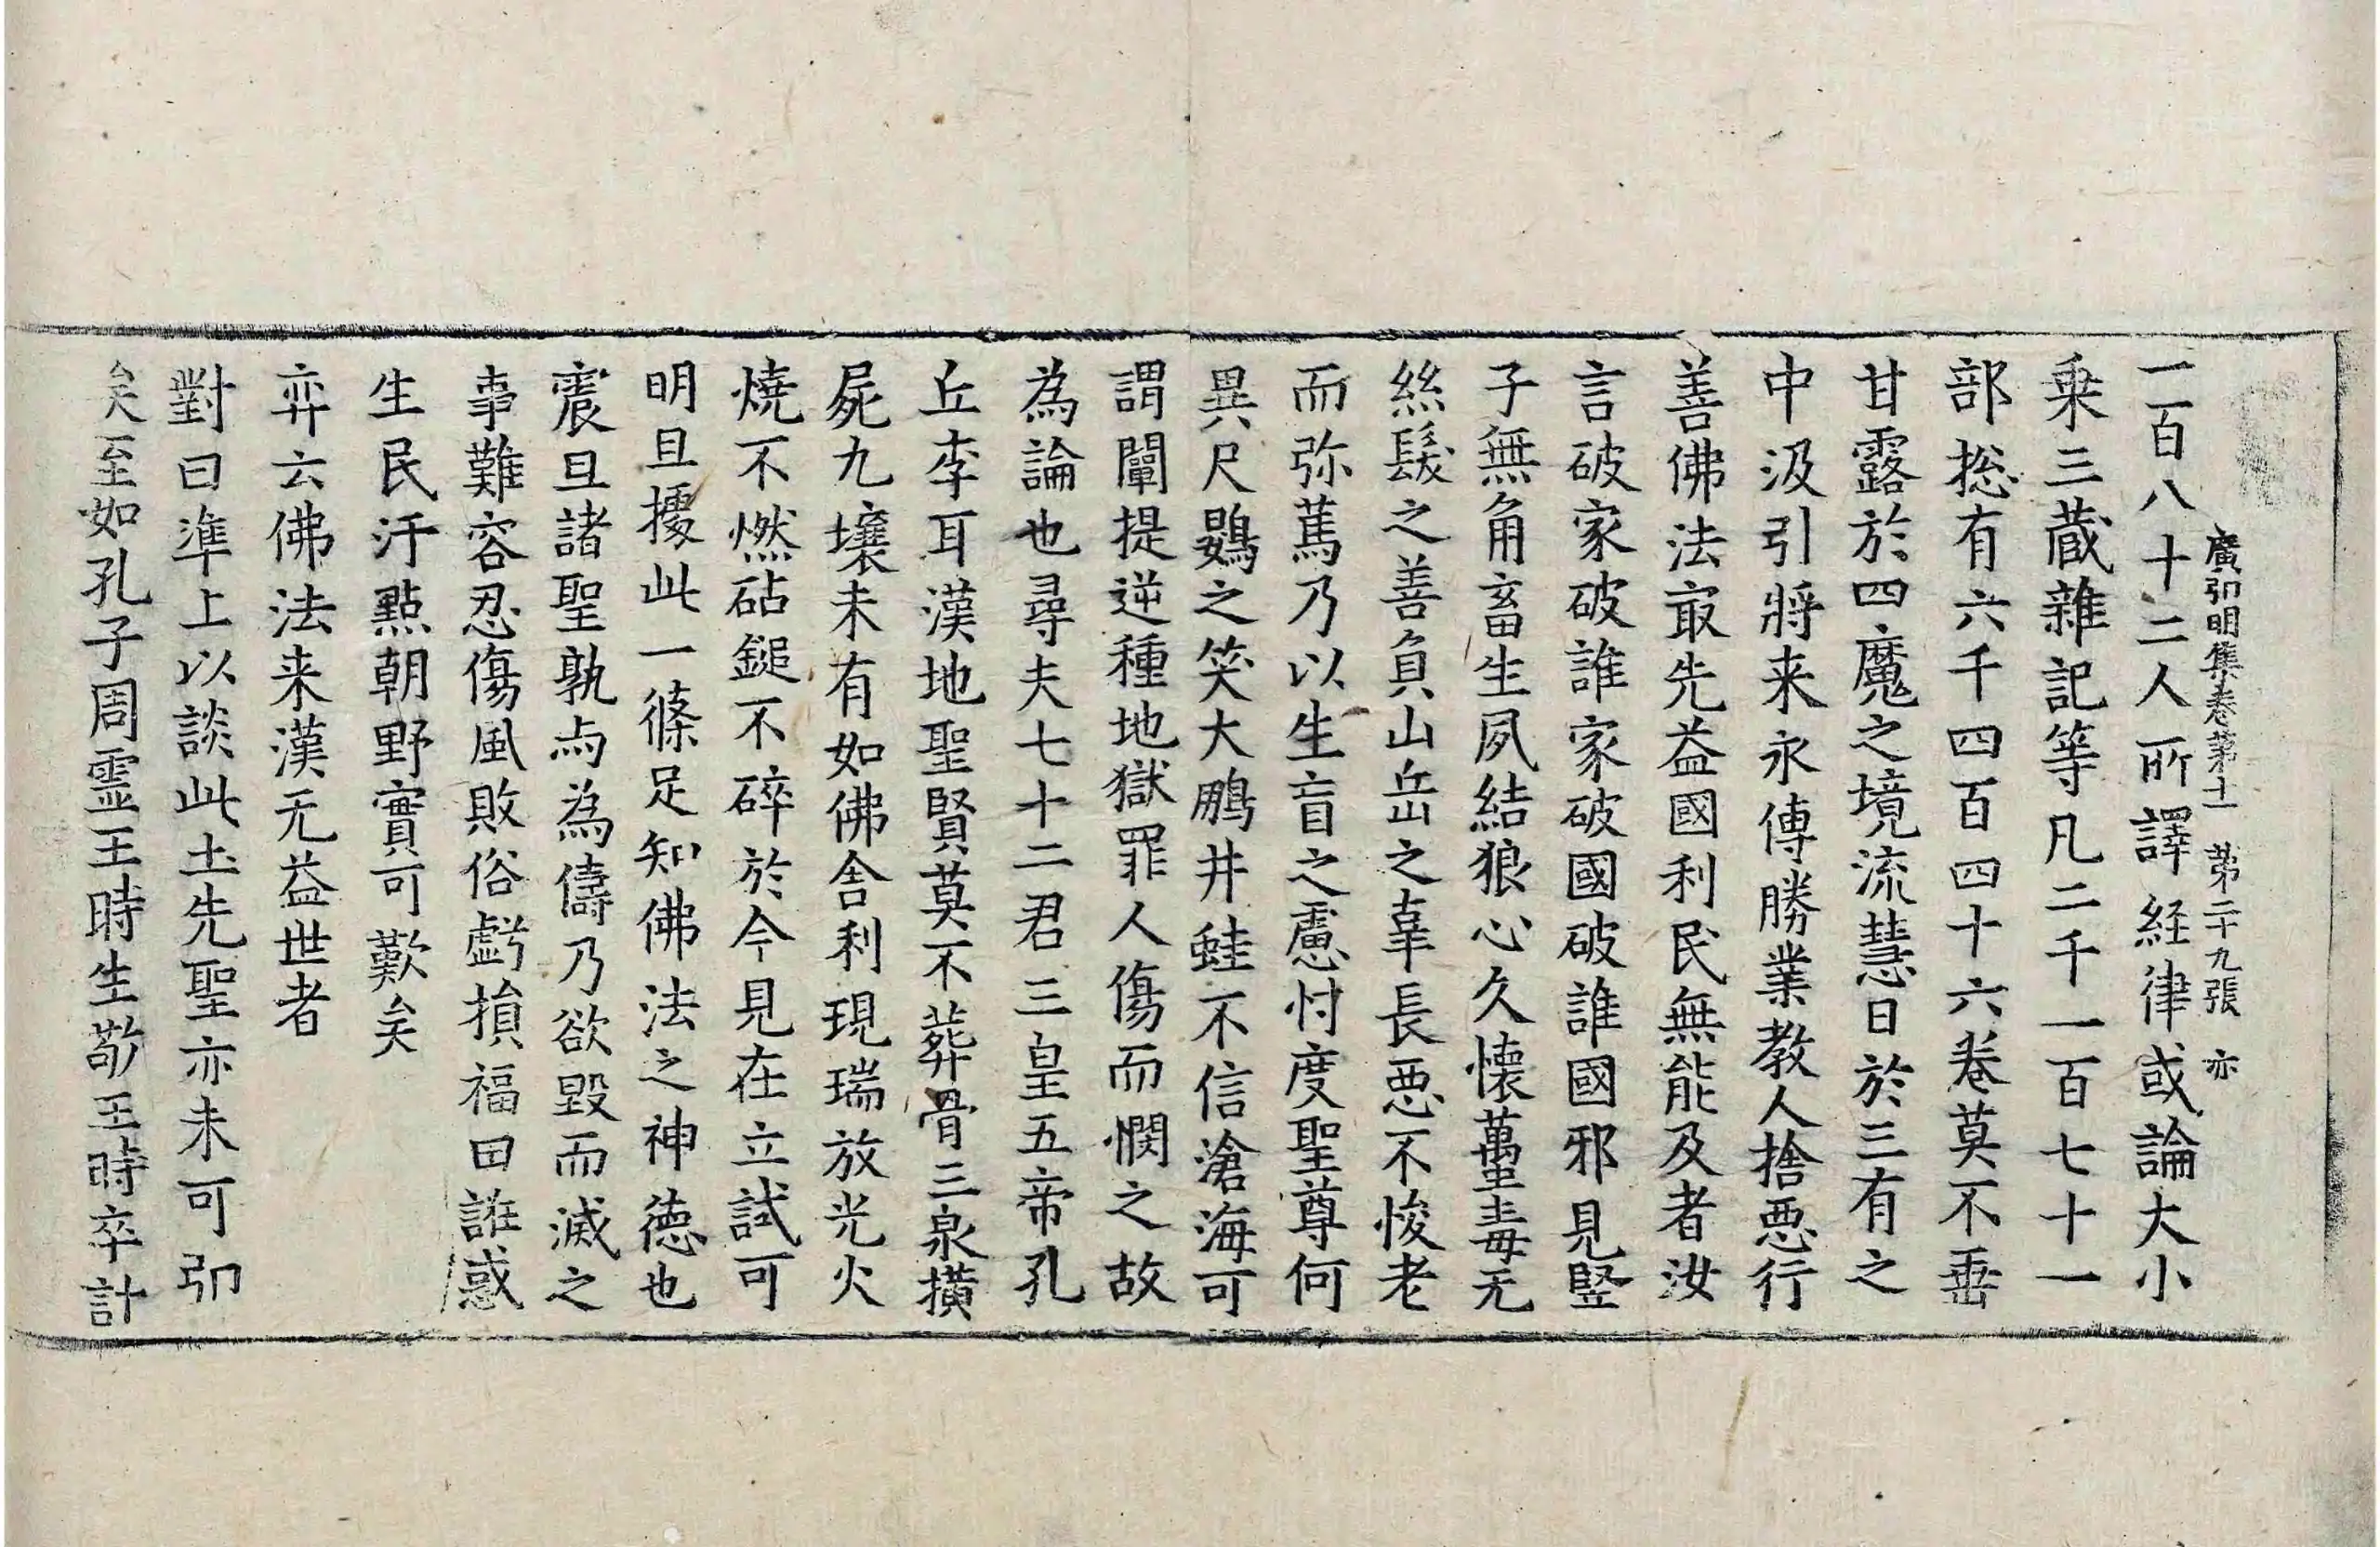 廣弘明集卷第十一 第二十九張 亦
一百八十二人所譯経律或論大小
乗三蔵雜記等凡二千一百七十一
部捴有六千四百四十六巻莫不垂
甘露於四魔之境流慧日於三有之
中汲引將来永傳勝業教人捨惡行
善佛法冣先益國利民無能及者汝
言破家破誰家破國破誰國邪見竪
子無角畜生夙結狼心久懷蠆毒无
絲髮之善負山岳之辜長惡不悛老
而弥篤乃以生盲之慮忖度聖尊何
異尺鷃之笑大鵬井蛙不信滄海可
謂闡提逆種地獄罪人傷而憫之故
為論也尋夫七十二君三皇五帝孔
丘李耳漢地聖賢莫不葬骨三泉横
屍九壤未有如佛舍利現瑞放光火
燒不燃砧鎚不碎於今見在立試可
明且據此一條足知佛法之神德也
震旦諸聖孰与為儔乃欲毀而滅之
事難容忍傷風敗俗虧損福田誑惑
生民汙點朝野實可歎矣
弈云佛法来漢无益世者
對曰準上以談此土先聖亦未可弘
矣至如孔子周霊王時生敬王時卒計